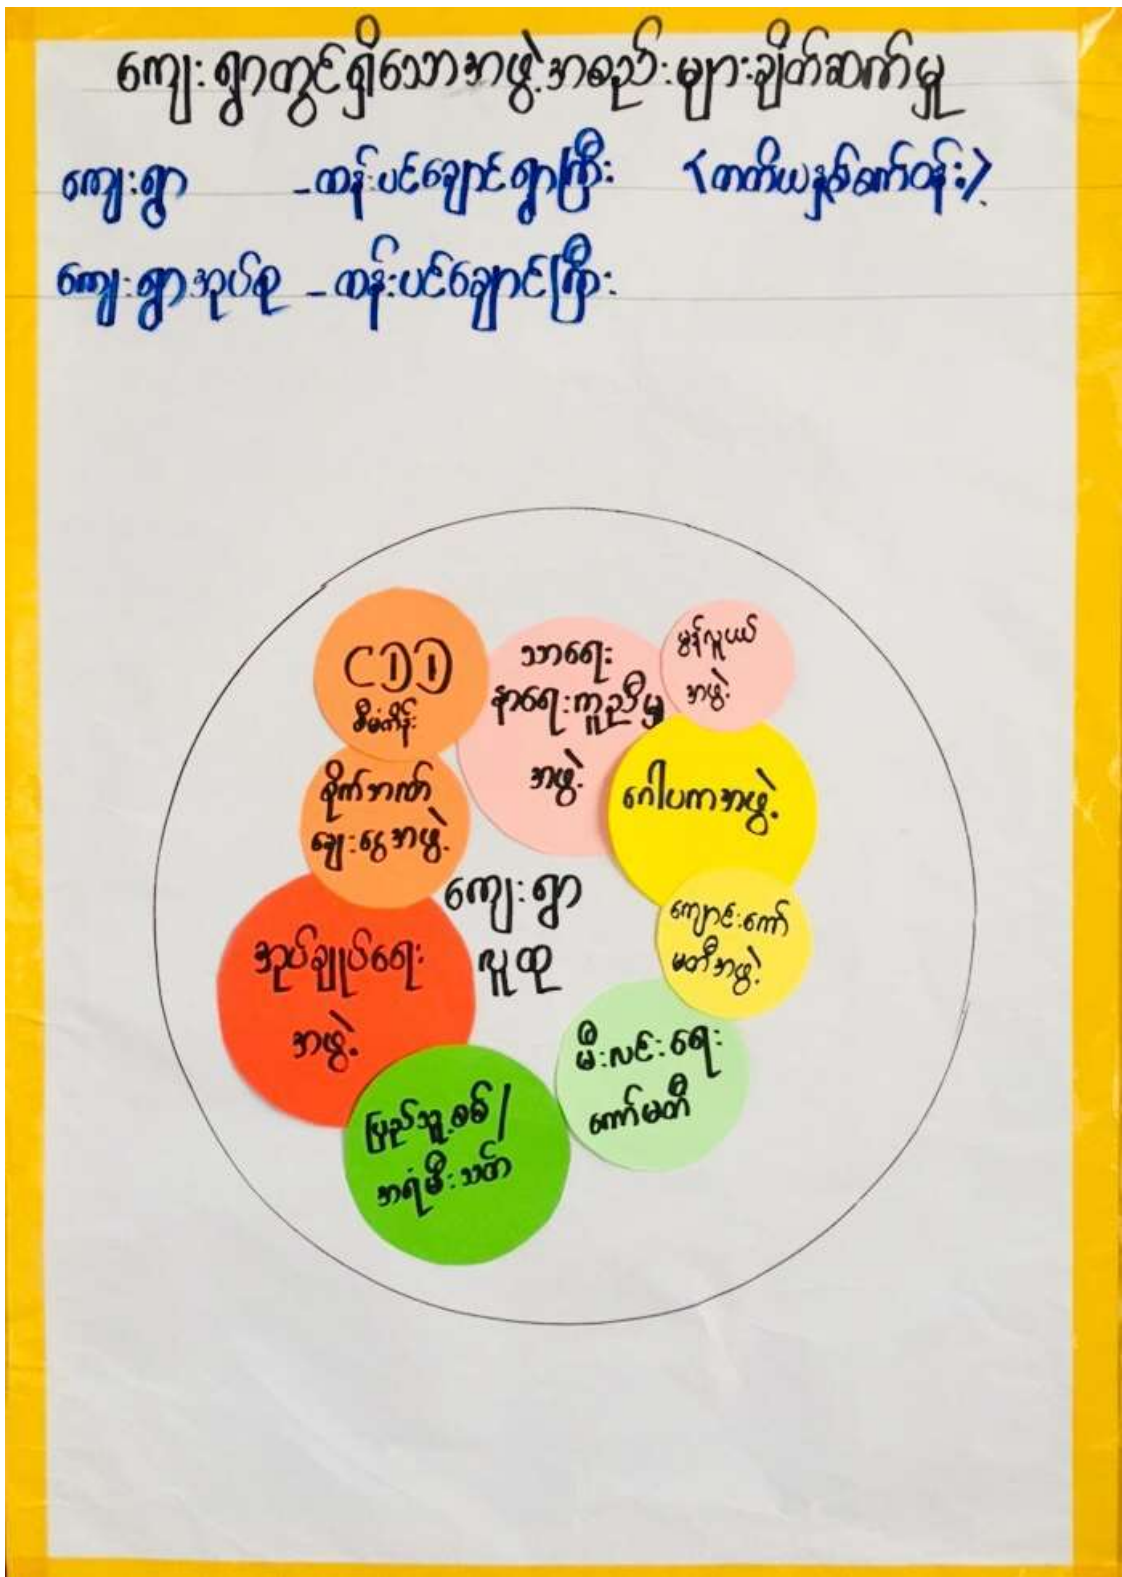 ကျေးရွာတွင်ရှိသောအဖွဲ့အစည်းများချိတ်ဆက်မှု
ကျေးရွာ - ထန်းပင်ချောင်ရွာကြီး (တတိယနှစ်စက်ဝန်း)
ကျေးရွာအုပ်စု - ထန်းပင်ချောင်ကြီး
CDD
စီမံကိန်း
သာရေး
နာရေးကူညီမှု
အဖွဲ့
မွန်လူငယ်
အဖွဲ့
စိုက်ဘဏ်
ချေးငွေအဖွဲ့
ဂေါပကအဖွဲ့
ကျေးရွာ
လူထု
ကျောင်းကော်
မတီအဖွဲ့
အုပ်ချုပ်ရေး
အဖွဲ့
မီးလင်းရေး
ကော်မတီ
ပြည်သူ့စစ်/
အရံမီးသတ်